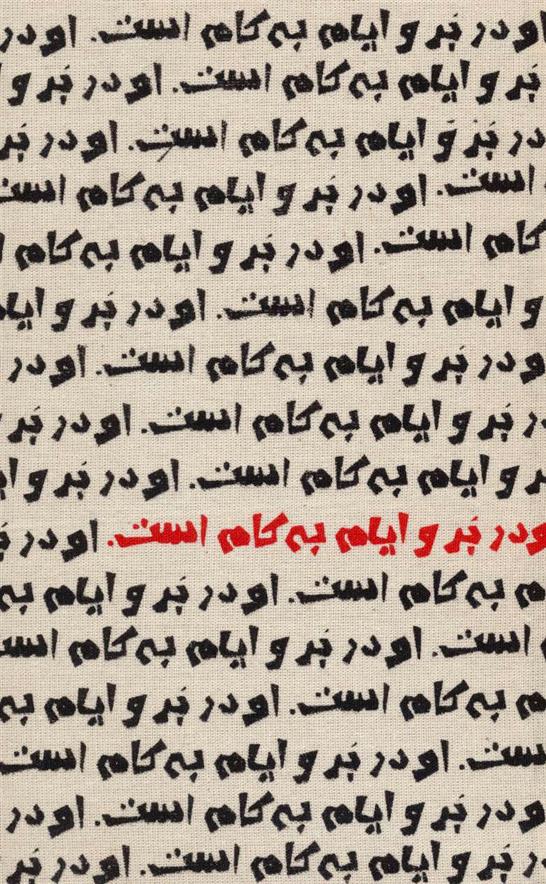 او در بَر و ایام به کام است. او در
بَر و ایام به کام است. او در بَر و
در بَر و ایام به کام است. او در بَر
است. او در بَر و ایام به کام است
کام است. او در بَر و ایام به کام
و ایام به کام است. او در بَر و
در بَر و ایام به کام است. او در
بَر و ایام به کام است. او در بَر
و ایام به کام است. او در بَر و
در بَر و ایام به کام است. او در
به کام است. او در بَر و ایام به
است. او در بَر و ایام به کام است
به کام است. او در بَر و ایام به
است. او در بَر و ایام به کام است
او در بَر و ایام به کام است. او در
بَر و ایام به کام است. او در بَر